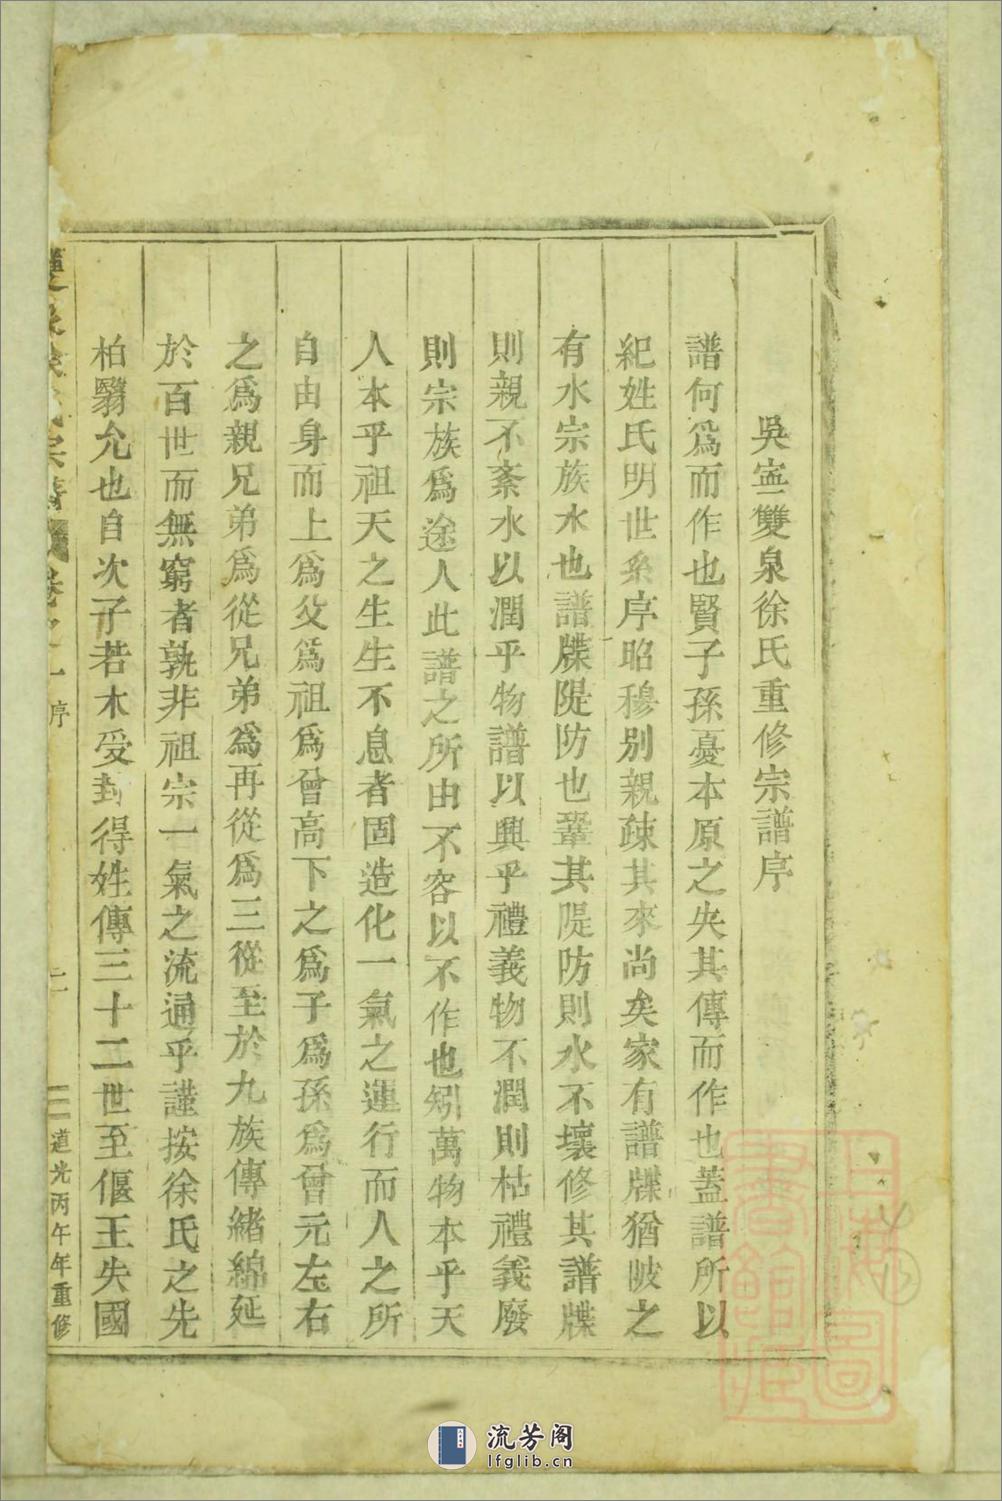 吳寧雙泉徐氏重修宗譜序
譜何爲而作也賢子孫憂本原之失其傳而作也蓋譜所以
紀姓氏明世系序昭穆別親疎其來尚矣家有譜牒猶陂之
有水宗族水也譜牒隄防也鞏其隄防則水不壞修其譜牒
則親不紊水以潤乎物譜以興乎禮義物不潤則枯禮義廢
則宗族爲途人此譜之所由不容以不作也矧萬物本乎天
人本乎祖天之生生不息者固造化一氣之運行而人之所
自由身而上爲父爲祖爲曾高下之爲子爲孫爲曾元左右
之爲親兄弟爲從兄弟爲再從爲三從至於九族傳緒綿延
於百世而無窮者孰非祖宗一氣之流通乎謹按徐氏之先
柏翳允也自次子若木受封得姓傳三十二世至偃王失國
雙泉徐氏宗譜 卷之一 序 二 道光丙午年重修
上海圖書館藏
流芳阁
lfglib.cn